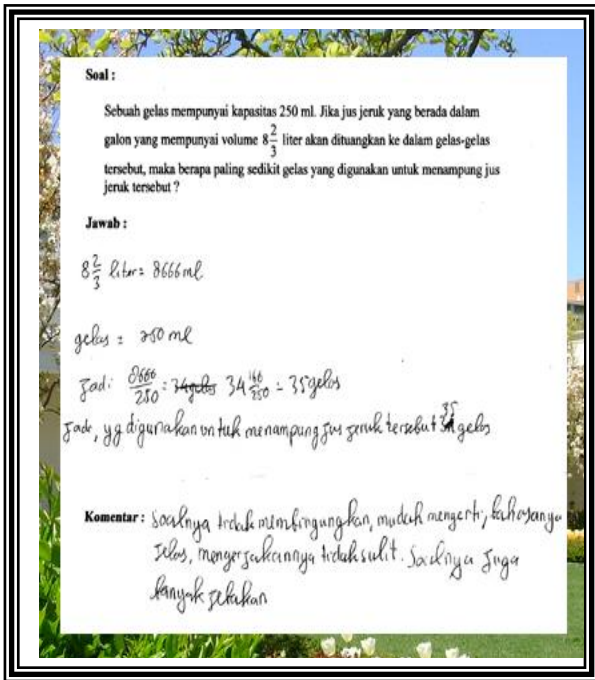 Soal :
Sebuah gelas mempunyai kapasitas 250 ml. Jika jus jeruk yang berada dalam
galon yang mempunyai volume 8 2/3 liter akan dituangkan ke dalam gelas-gelas
tersebut, maka berapa paling sedikit gelas yang digunakan untuk menampung jus
jeruk tersebut ?
Jawab :
8 2/3 liter = 8666 ml
gelas = 250 ml
Jadi 8666/250 = 34 gelas 34 166/250 = 35 gelas
Jadi, yg digunakan untuk menampung jus jeruk tersebut 35 gelas
Komentar : Soalnya tidak membingungkan, mudah mengerti, bahasanya
jelas, mengerjakannya tidak sulit. Soalnya juga
banyak jebakan